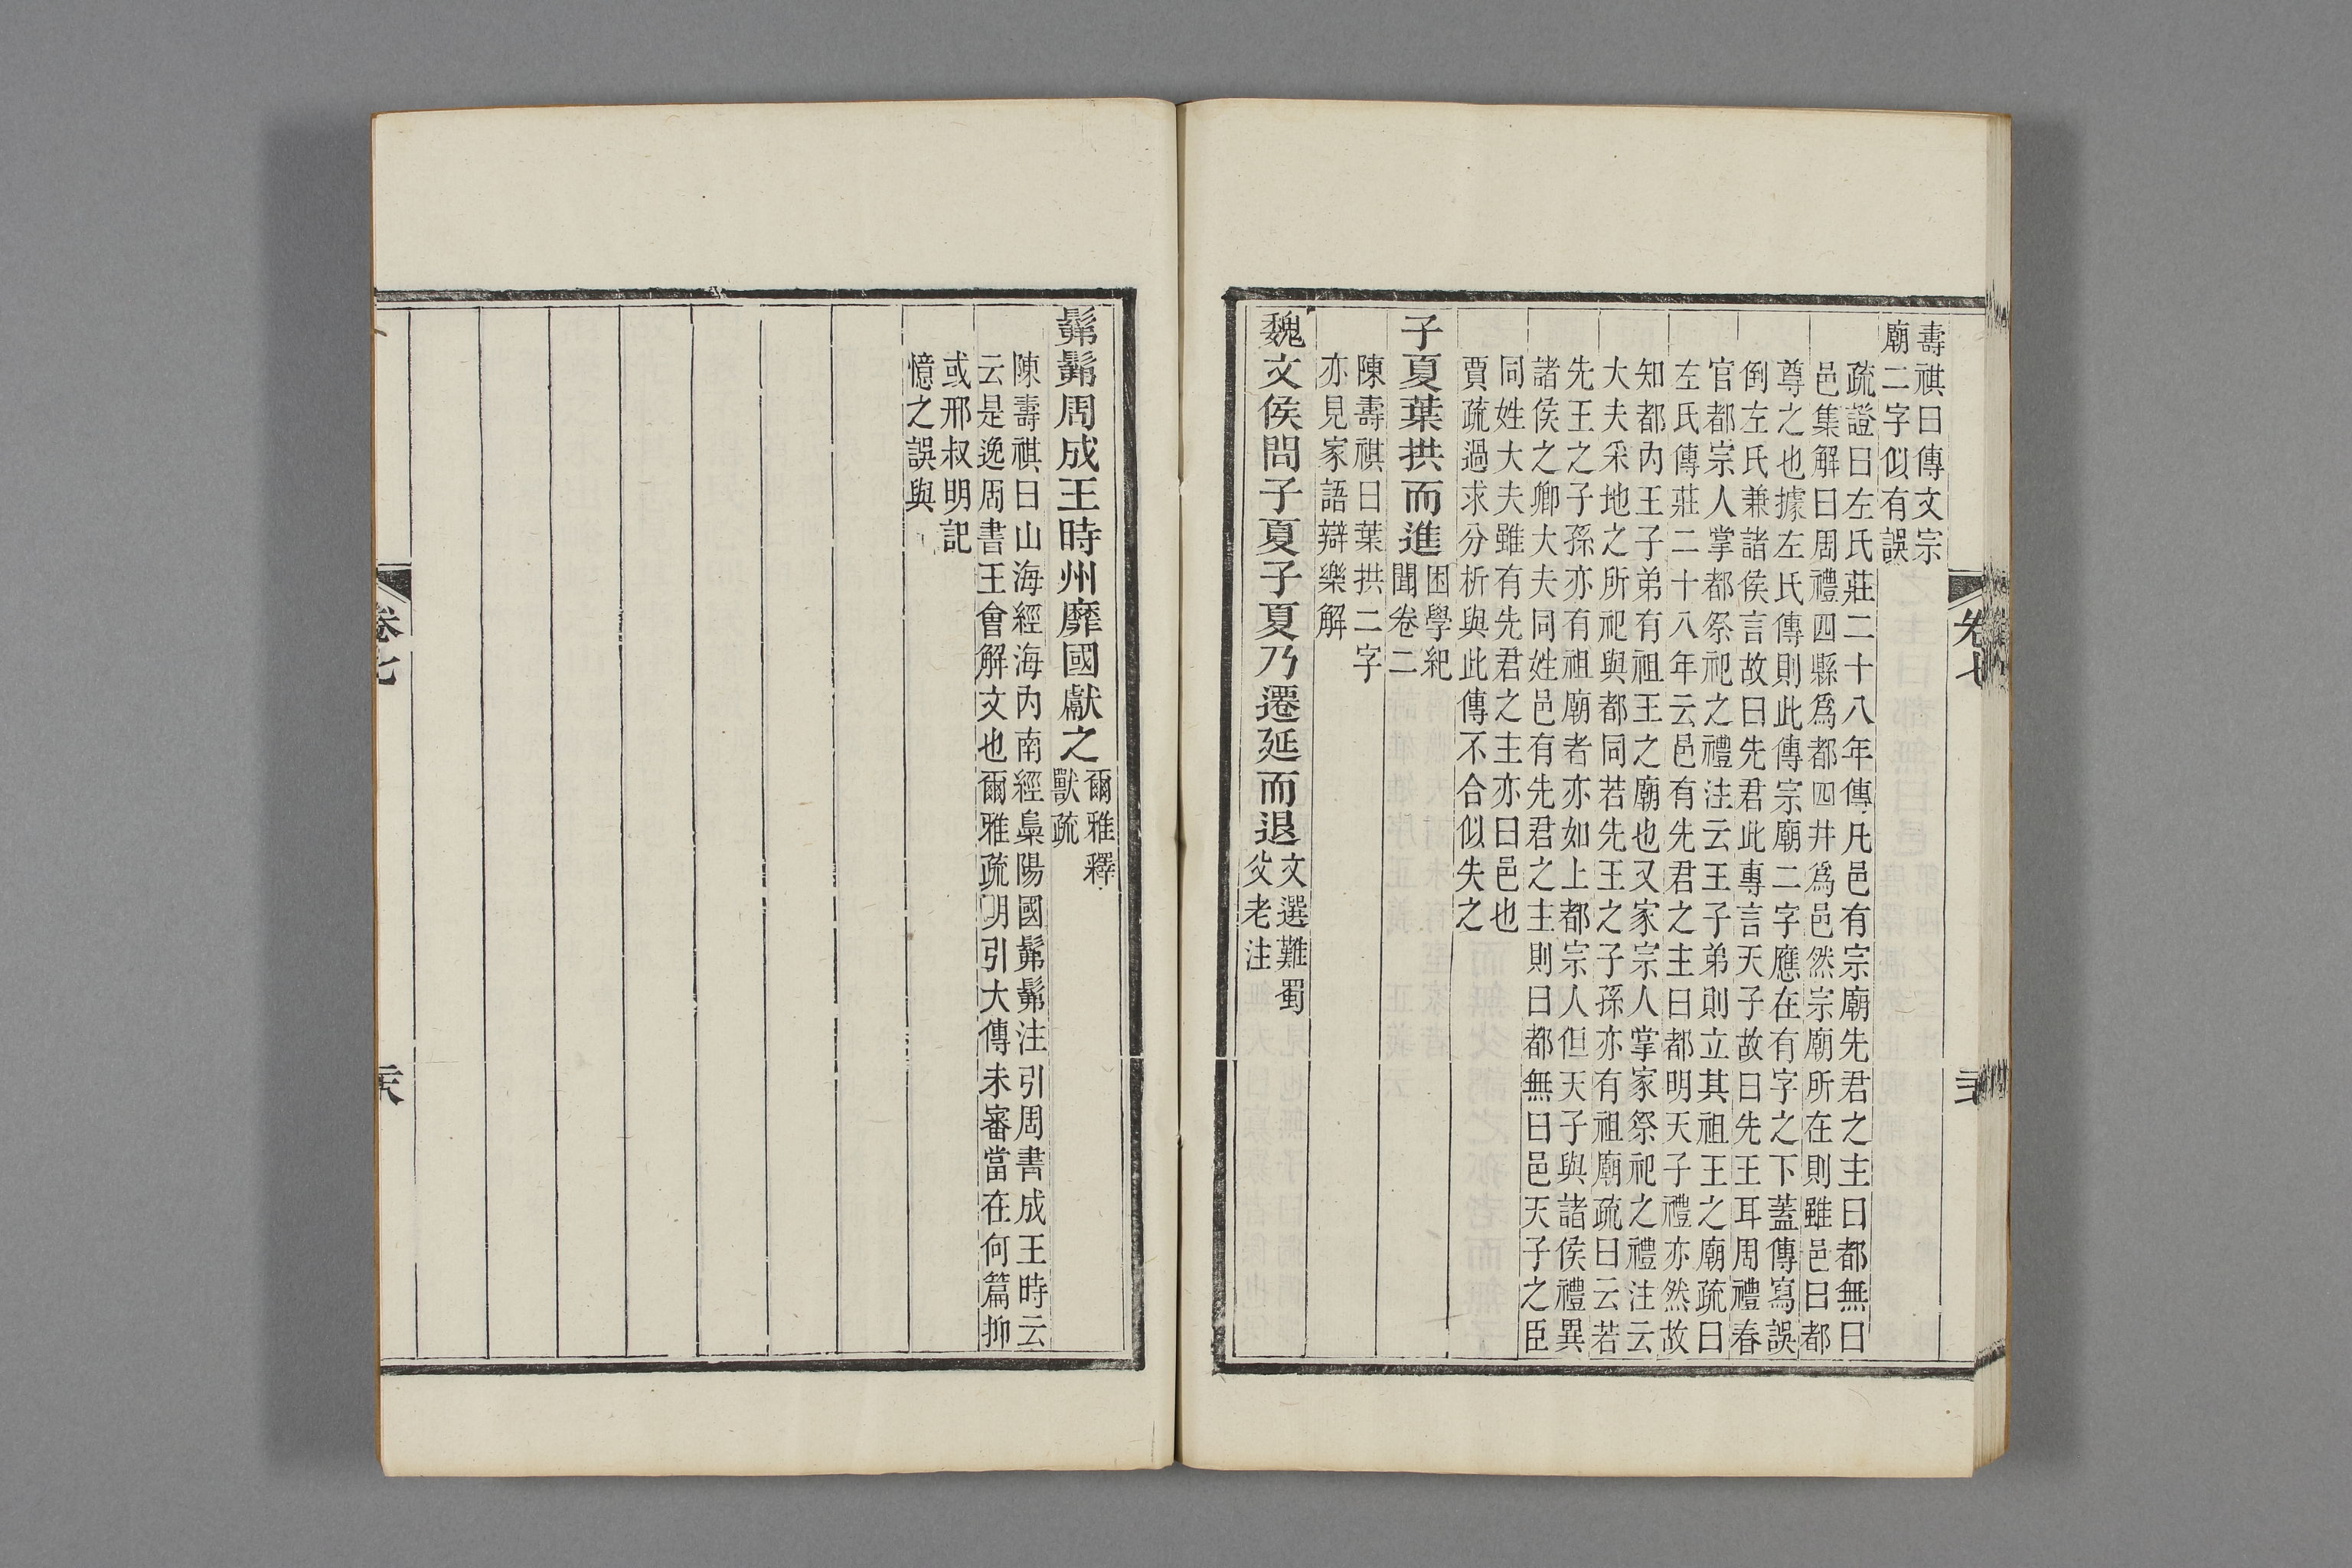 壽祺曰傳文宗
廟二字似有誤
疏證曰左氏莊二十八年傳凡邑有宗廟先君之主曰都無曰
邑集解曰周禮四縣爲都四井爲邑然宗廟所在則雖邑曰都
尊之也據左氏傳則此傳宗廟二字應在有字之下蓋傳寫誤
倒左氏兼諸侯言故曰先君此專言天子故曰先王耳周禮春
官都宗人掌都祭祀之禮注云王子弟則立其祖王之廟疏曰
左氏傳莊二十八年云邑有先君之主曰都明天子禮亦然故
知都內王子弟有祖王之廟也又家宗人掌家祭祀之禮注云
大夫采地之所祀與都同若先王之子孫亦有祖廟疏曰云若
先王之子孫亦有祖廟者亦如上都宗人但天子與諸侯禮異
諸侯之卿大夫同姓邑有先君之主則曰都無曰邑天子之臣
同姓大夫雖有先君之主亦曰邑也
賈疏過求分析與此傳不合似失之
子夏葉拱而進
困學紀
聞卷二
陳壽祺曰葉拱二字
亦見家語辯樂解
魏文侯問子夏子夏乃遷延而退
文選難蜀
父老注
卷七
髴髴周成王時州靡國獻之
爾雅釋
獸疏
陳壽祺曰山海經海內南經梟陽國髴髴注引周書成王時云
云是逸周書王會解文也爾雅疏明引大傳未審當在何篇抑
或邢叔明記
憶之誤與
卷七